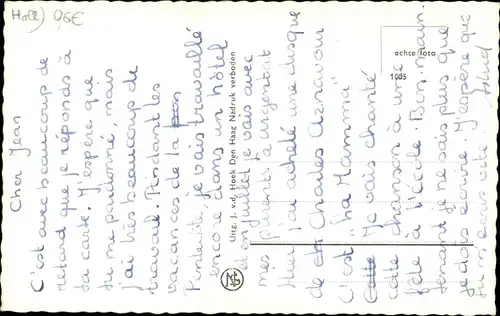 Holl) 06€
Cher Jean
C'est avec beaucoup de
retard que je réponds à
ta carte. J'espère que
tu me pardonné, mais
j'ai très beaucoup de
travail. Pendant les
vacances de la
Pentecôte, je vais travaillé
encore dans un hôtel
et en juillet je vais avec
mes parents à
Hier j'ai acheté une disque
de Charles Aznavour
C'est "La Mamma"
Je vais chanté
cette chanson à une
fête à l'école. Bon, main-
tenant je ne sais plus que
je dois écrire. J'espère que
tu m'écris vite.
Uitg. J. v. d. Hoek Den Haag Nadruk verboden
echte foto
1005